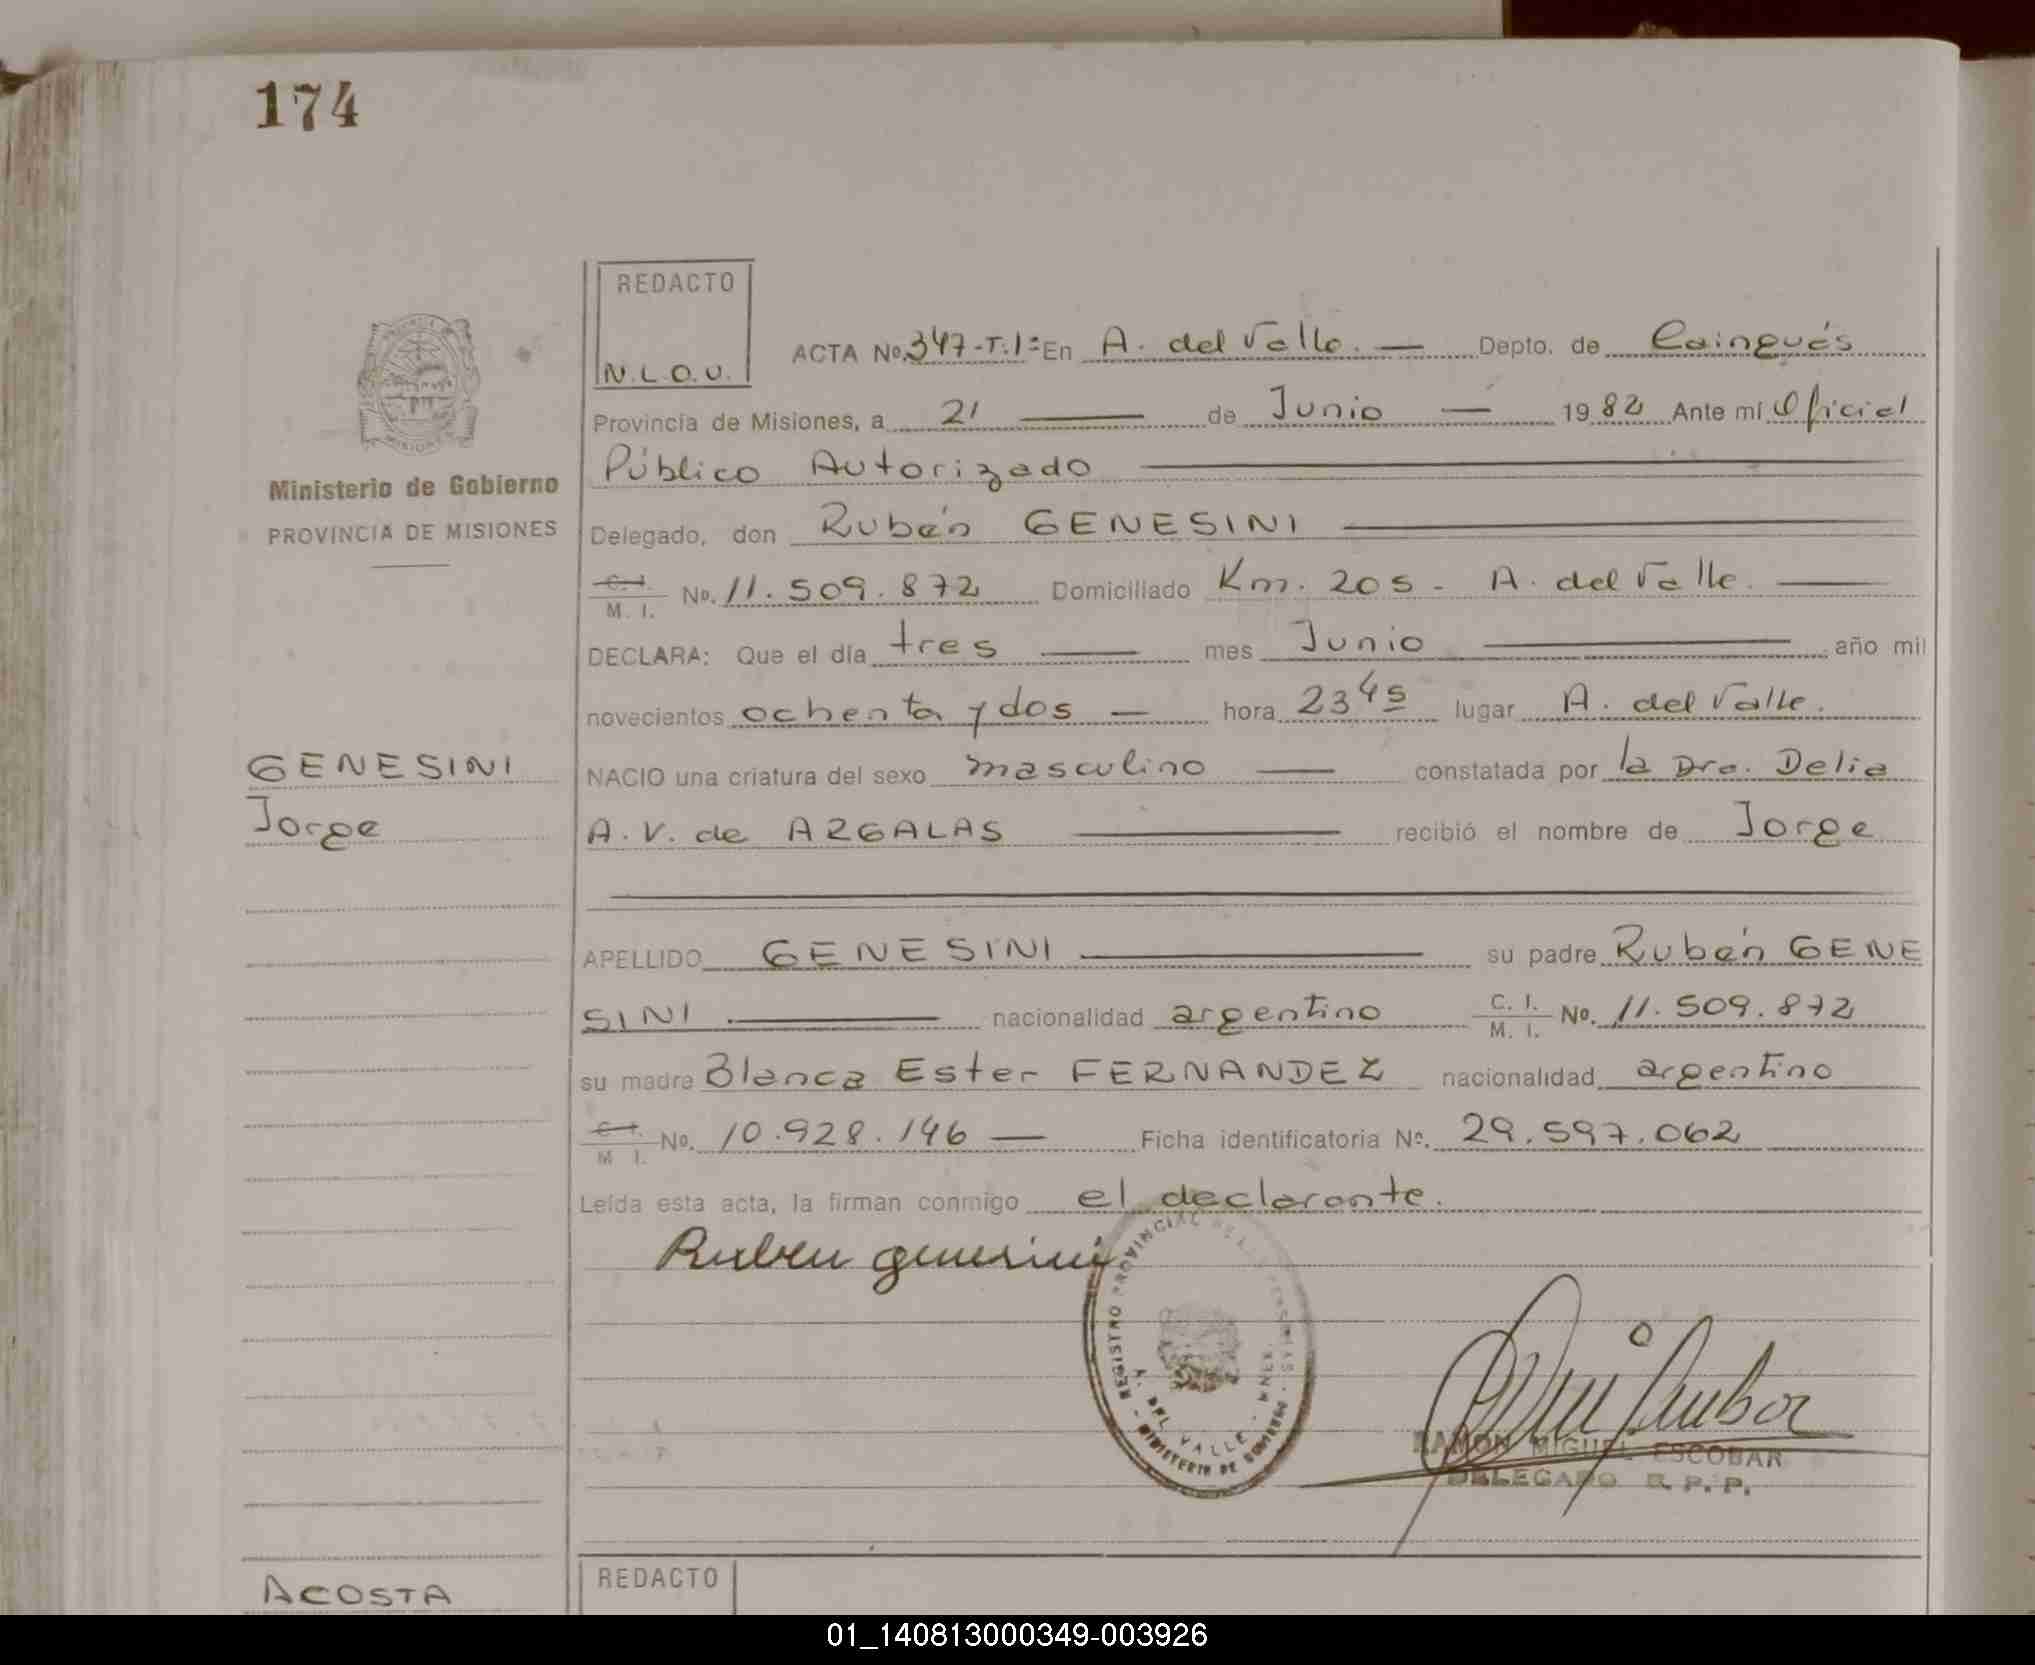 174
REDACTO
N.L.O.U.
ACTA Nº 347-T.1º En A. del Valle. Depto. de Cainguás
Provincia de Misiones, a 21 de Junio 1982 Ante mí Oficial
Público Autorizado
Ministerio de Gobierno
PROVINCIA DE MISIONES
Delegado, don Rubén GENESINI
C. I. M. I. Nº. 11.509.872 Domiciliado Km. 205 - A. del Valle.
DECLARA: Que el día tres mes Junio año mil
novecientos ochenta y dos hora 23 45 lugar A. del Valle.
GENESINI
Jorge
NACIO una criatura del sexo masculino constatada por la Dra. Delia
A. V. de ARGALAS recibió el nombre de Jorge
APELLIDO GENESINI su padre Rubén GENE
SINI nacionalidad argentino C. I. M. I. Nº. 11.509.872
su madre Blanca Ester FERNANDEZ nacionalidad argentino
C. I. M. I. Nº. 10.928.146 Ficha identificatoria Nº. 29.597.062
Leída esta acta, la firman conmigo el declarante.
Ruben genesini
REGISTRO PROVINCIAL DE LAS PERSONAS
A. DEL VALLE - MNES.
MINISTERIO DE GOBIERNO
RAMON MIGUEL ESCOBAR
DELEGADO R. P. P.
ACOSTA
REDACTO
01_140813000349-003926